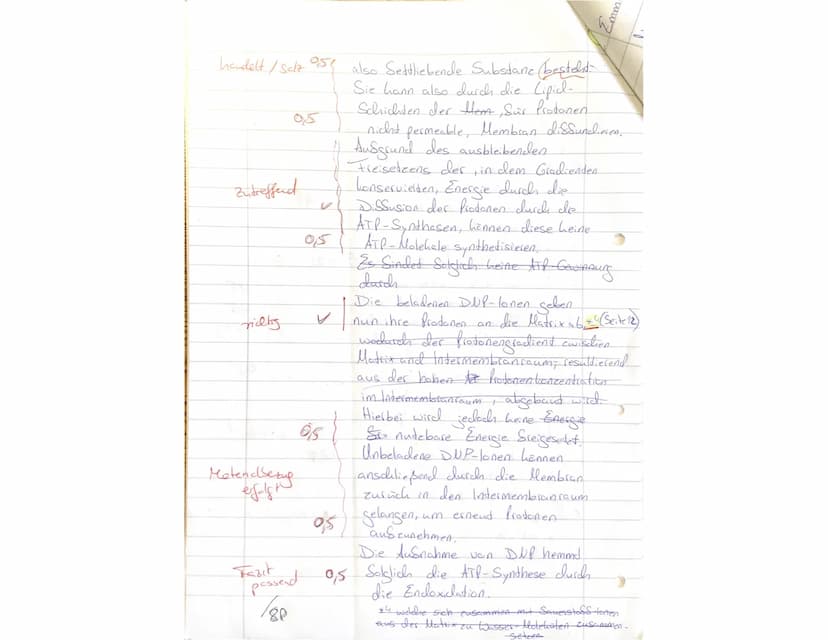 Emm
handelt / Satz 0,5 also fettliebende Substanz besteht.
Sie kann also durch die Lipid-
0,5 Schichten der Mem, für Protonen
nicht permeable, Membran diffundieren.
Aufgrund des ausbleibenden
Freisetzens der, in dem Gradienden
zutreffend konservierten, Energie durch die
✓ Diffusion der Protonen durch die
ATP-Synthasen, können diese keine
0,5 ATP-Moleküle synthetisieren.
Es findet folglich keine ATP-Gewinnung
durch
Die beladenen DNP-Ionen geben
richtig ✓ nun ihre Protonen an die Matrix ab, *4 (Seite 12)
wodurch der Protonengradient zwischen
Matrix und Intermembranraum, resultierend
aus der hohen Protonenkonzentration
im Intermembranraum, abgebaut wird.
Hierbei wird jedoch keine Energie
0,5 nutzbare Energie freigesetzt.
Unbeladene DNP-Ionen können
Materialbezug anschließend durch die Membran
erfolgt zurück in den Intermembranraum
0,5 gelangen, um erneut Protonen
aufzunehmen.
Die Aufnahme von DNP hemmt
Fazit 0,5 folglich die ATP-Synthese durch
passend die Endoxidation.
/8P *4 welche sich zusammen mit Sauerstoff-Ionen
aus der Matrix zu Wasser-Molekülen zusammen-
setzen